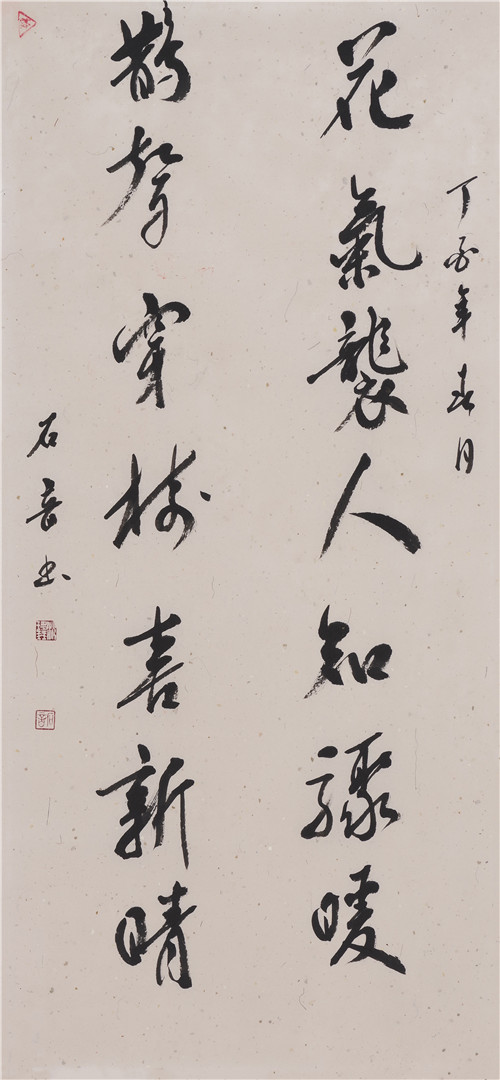 丁酉年春月
花氣襲人知驟暖
鵲聲穿樹喜新晴
石音书